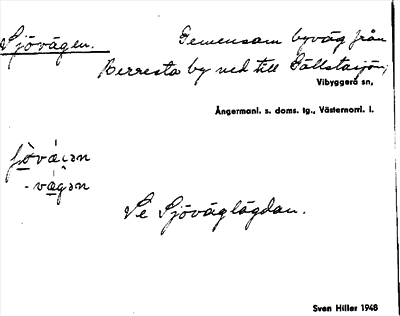 Sjövägen. Gemensam byväg från
Berresta by ned till Gällstasjön;
Vibyggerå sn,
Ångermanl. s. doms. tg., Västernorrl. l.
-vägən
Se Sjöväglägdan.
Sven Hiller 1948